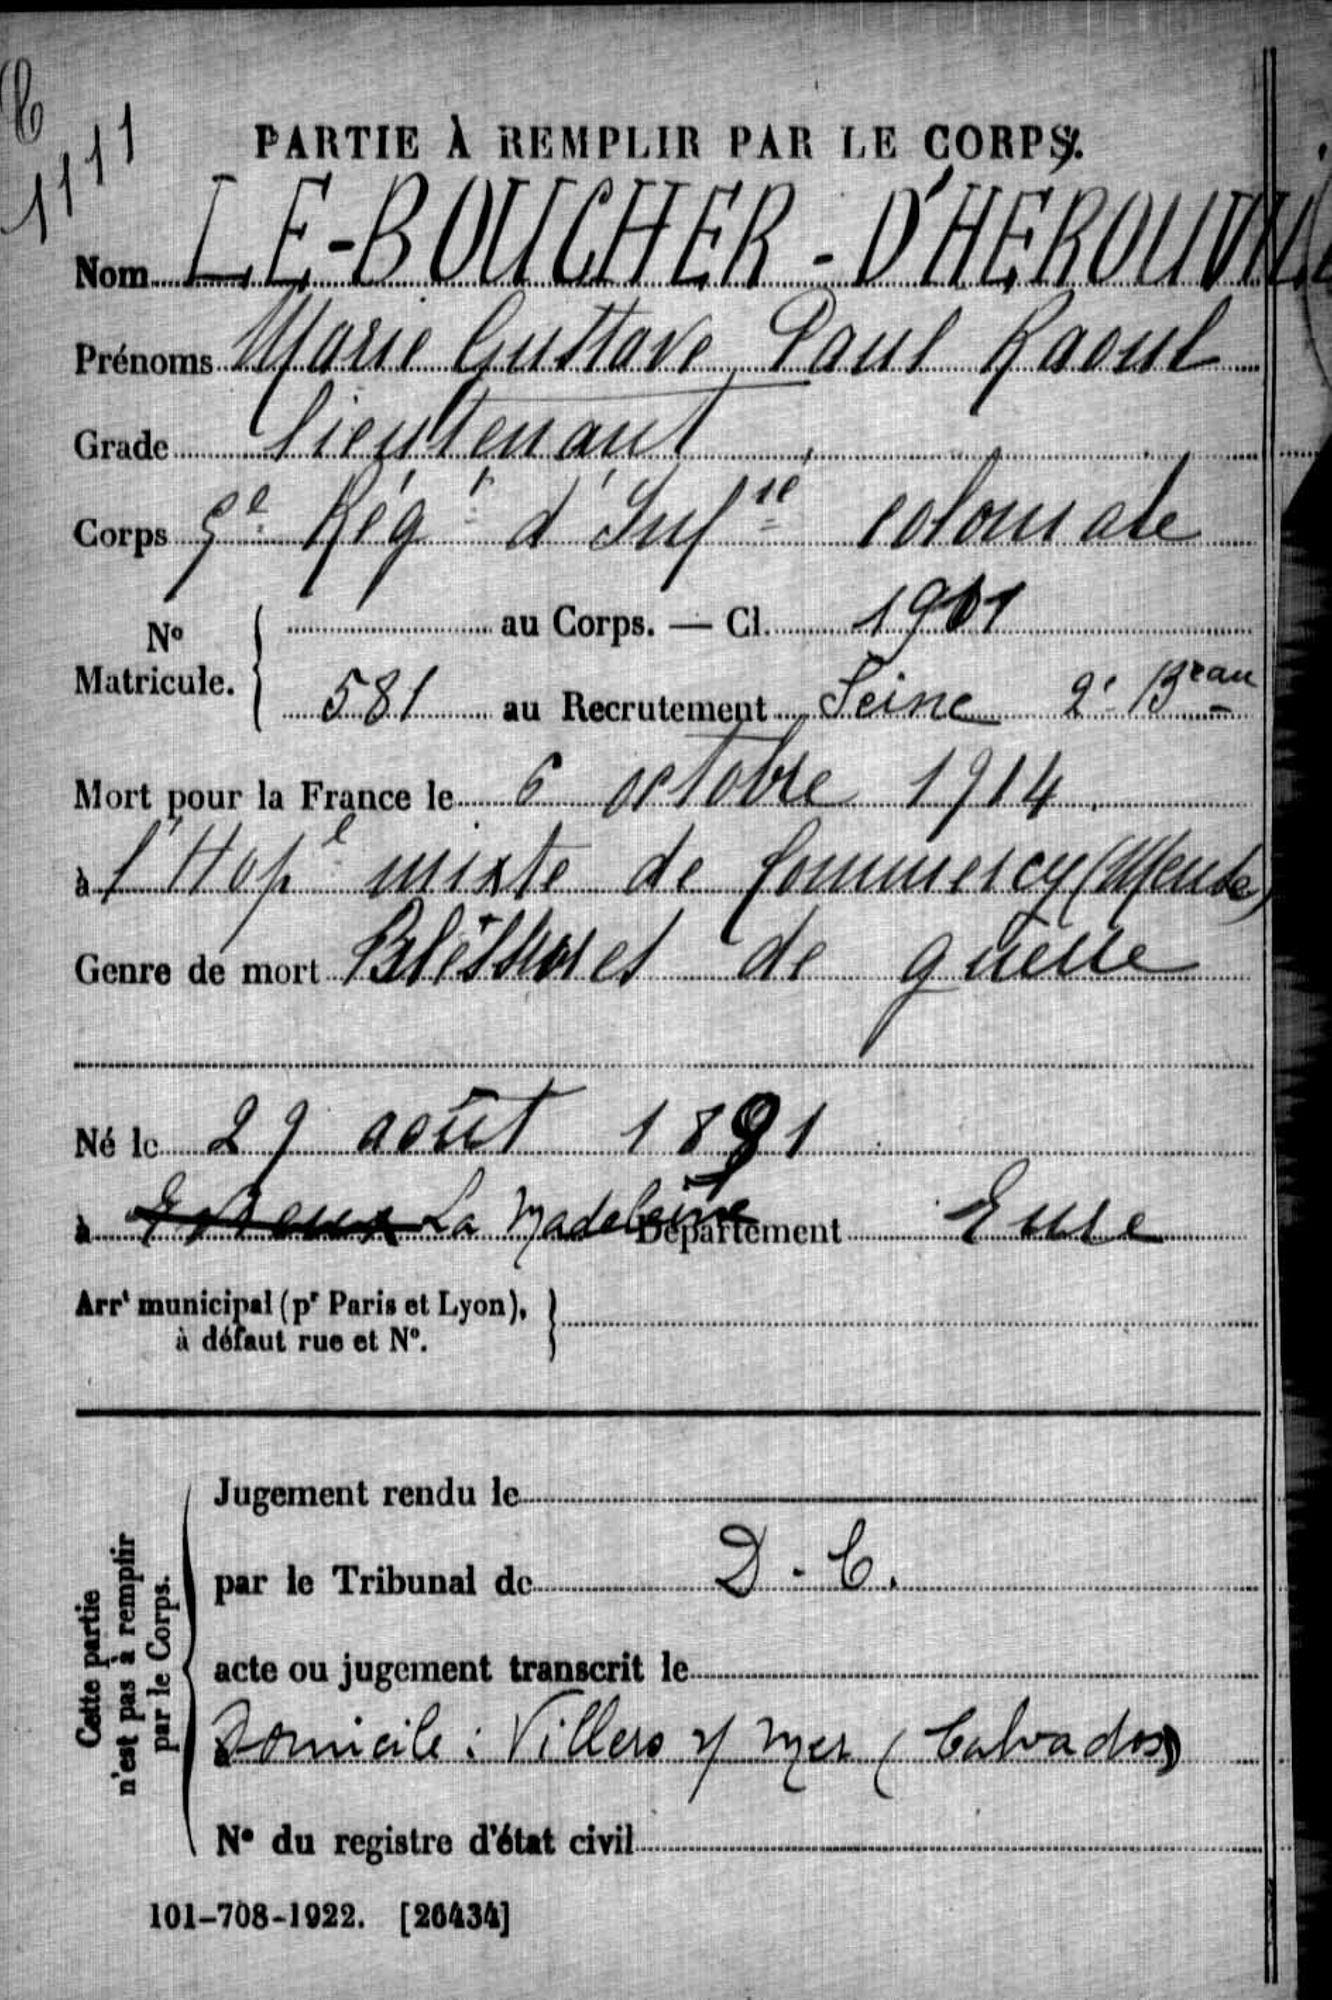 1111
PARTIE À REMPLIR PAR LE CORPS.
Nom LE-BOUCHER-D'HÉROUVILLE
Prénoms Marie Gustave Paul Raoul
Grade lieutenant
Corps 5e Régt d'Infie coloniale
No Matricule. au Corps. — Cl. 1901
581 au Recrutement Seine 2e Breau
Mort pour la France le 6 octobre 1914
à l'Hople mixte de Commercy (Meuse)
Genre de mort Blessures de guerre
Né le 29 août 1881
à Evreux La Madeleine Département Eure
Arrt municipal (pr Paris et Lyon),
à défaut rue et No.
Cette partie
n'est pas à remplir
par le Corps.
Jugement rendu le
par le Tribunal de D.C.
acte ou jugement transcrit le
à Domicile : Villers s/ mer (Calvados)
No du registre d'état civil
101-708-1922. [26434]